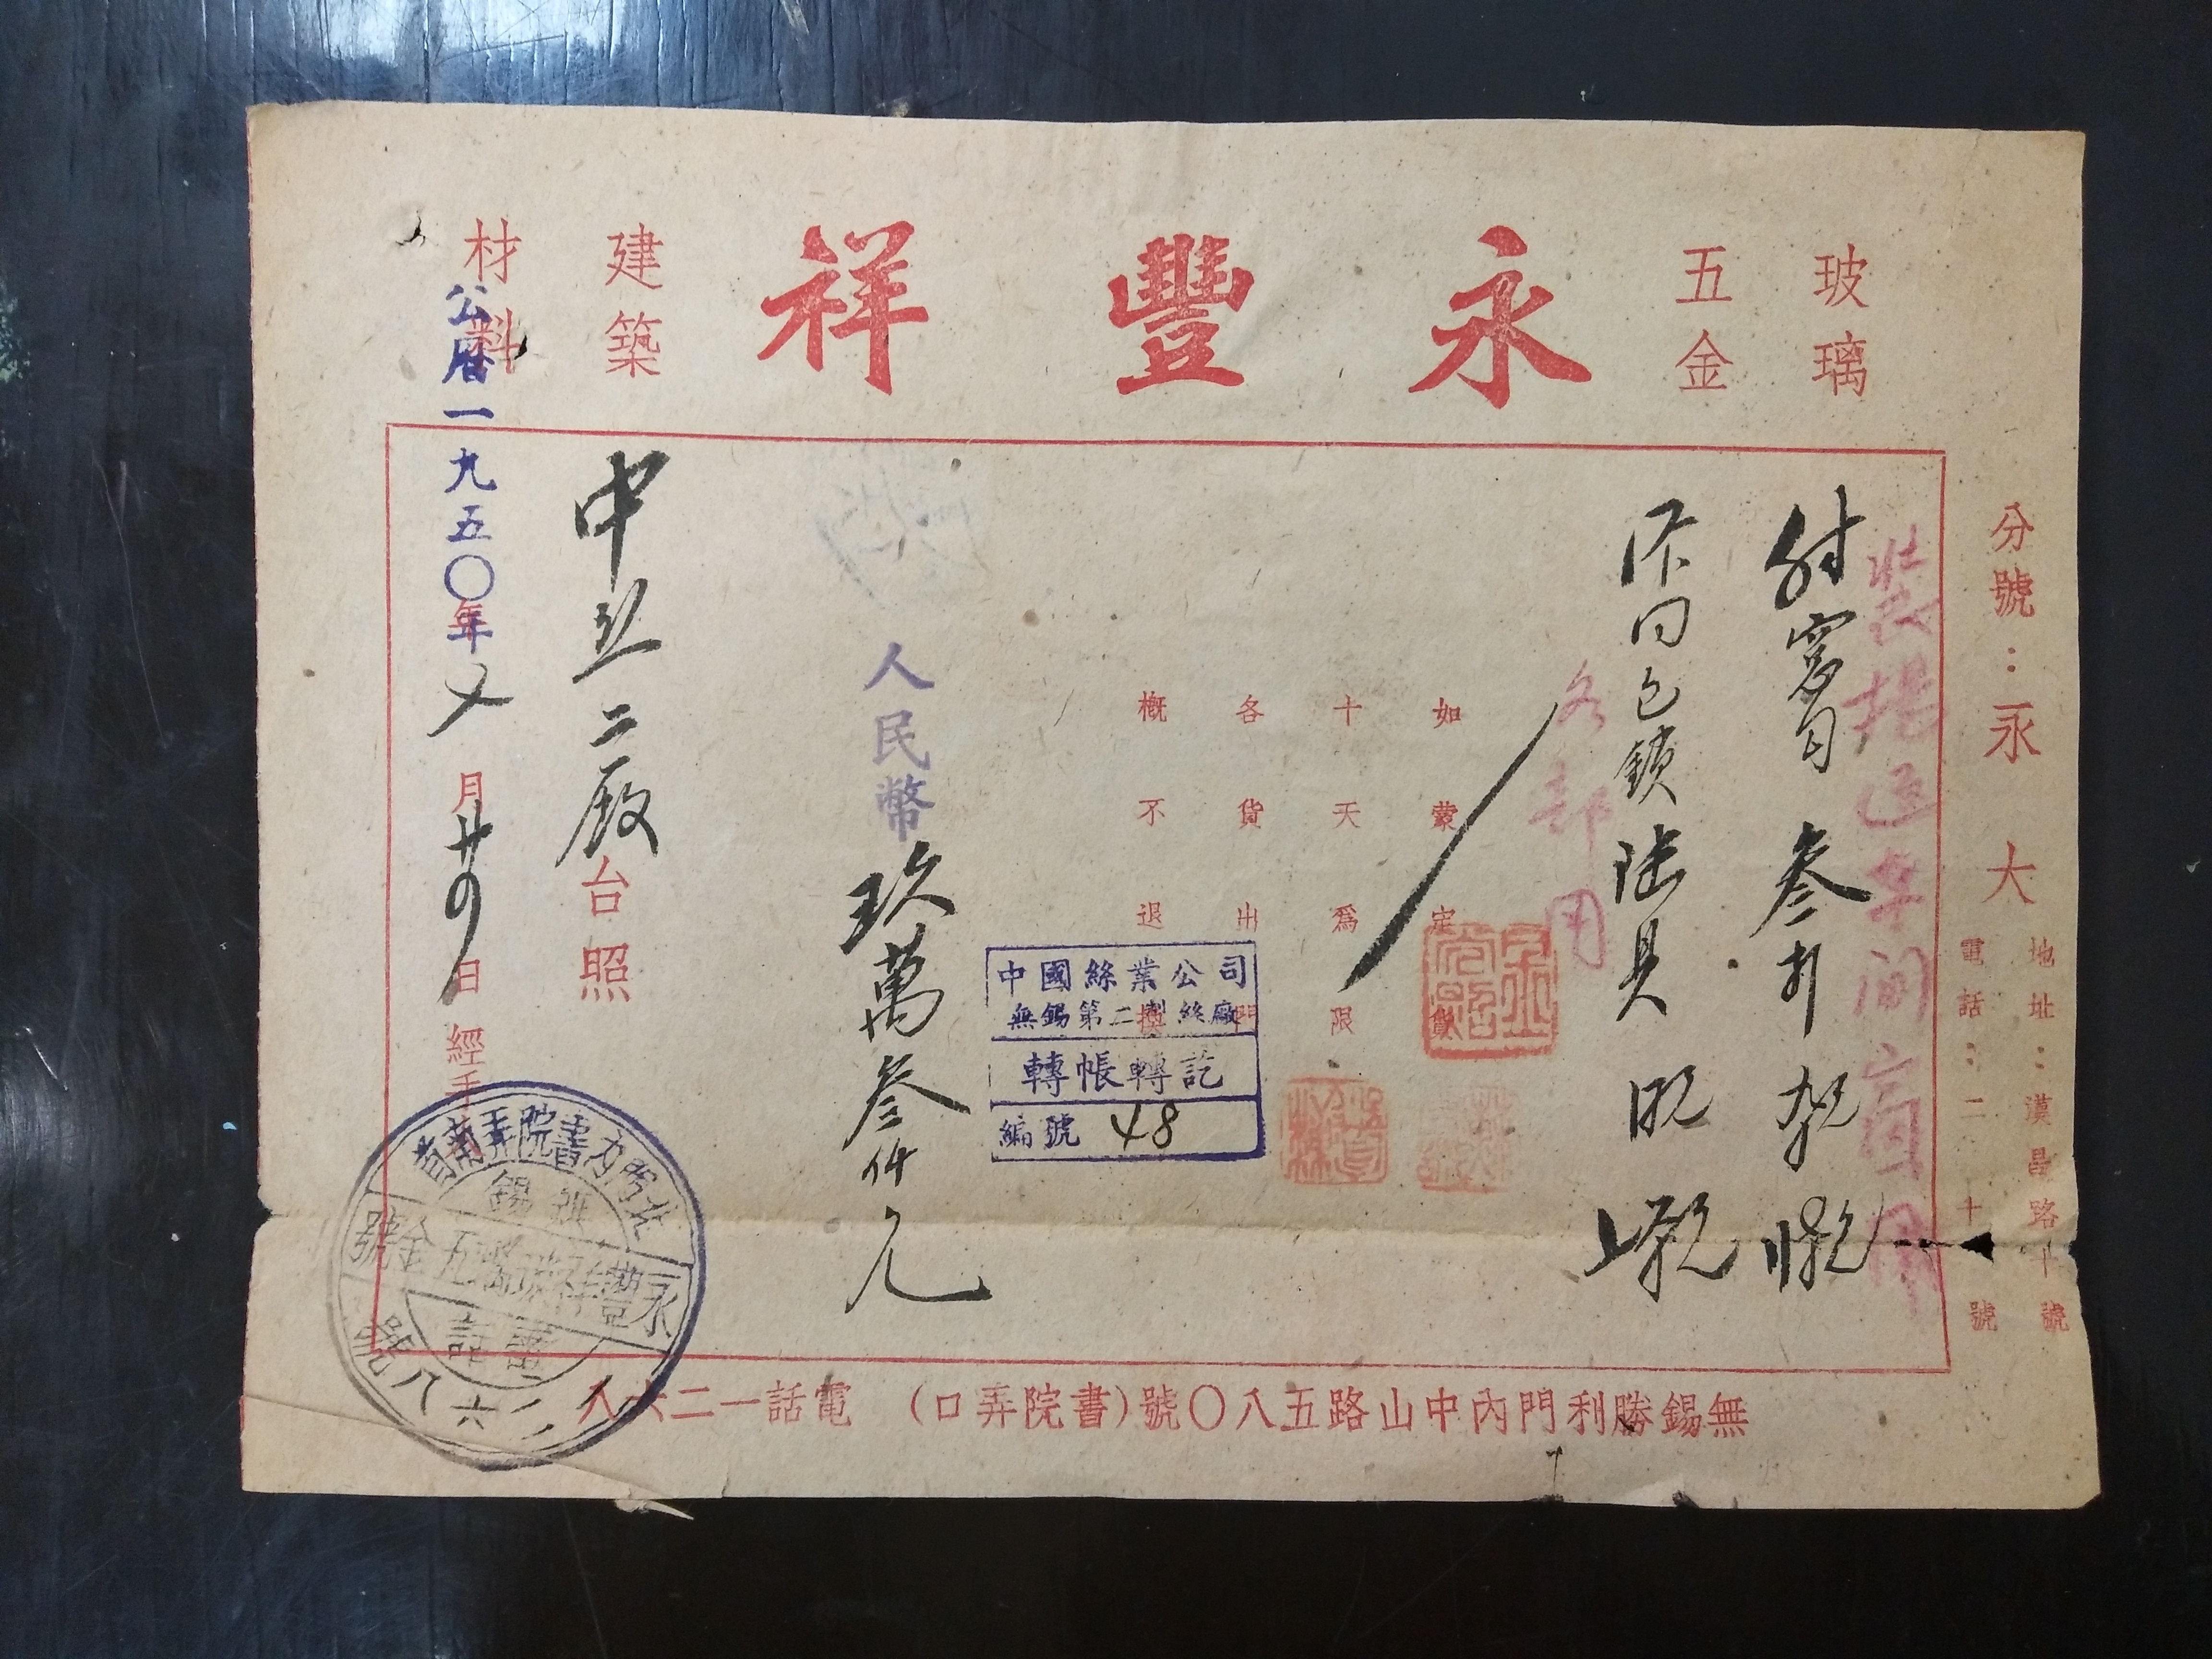 玻璃
五金
永豐祥
建築
材料
分號：永大
地址：漢昌路十號
電話：二十號
叁打
鎖陸具
各部用
如蒙定貨
十天為限
各貨出門
概不退換
人民幣玖萬叁仟元
中國絲業公司
無錫第二製絲廠
轉帳轉訖
編號 48
中絲二廠台照
公曆一九五〇年
月廿四日經手
北門內書院弄南首
無錫
永豐祥玻璃五金號
電話
一二六八號
無錫勝利門內中山路五八〇號(書院弄口) 電話一二六八